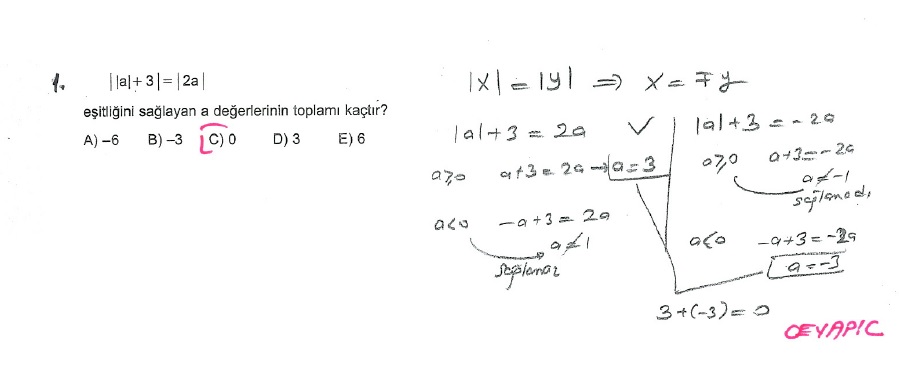 1. ||a|+3|=|2a|
eşitliğini sağlayan a değerlerinin toplamı kaçtır?
A) –6 B) –3 C) 0 D) 3 E) 6
|x| = |y| ⇒ x = ∓y
|a|+3 = 2a ✓
a≥0 a+3 = 2a → a=3
a<0 -a+3 = 2a
a≠1
sağlamaz
|a|+3 = -2a
a≥0 a+3=-2a
a≠-1
sağlamadı
a<0 -a+3=-2a
a=-3
3+(-3)=0
CEVAP:C